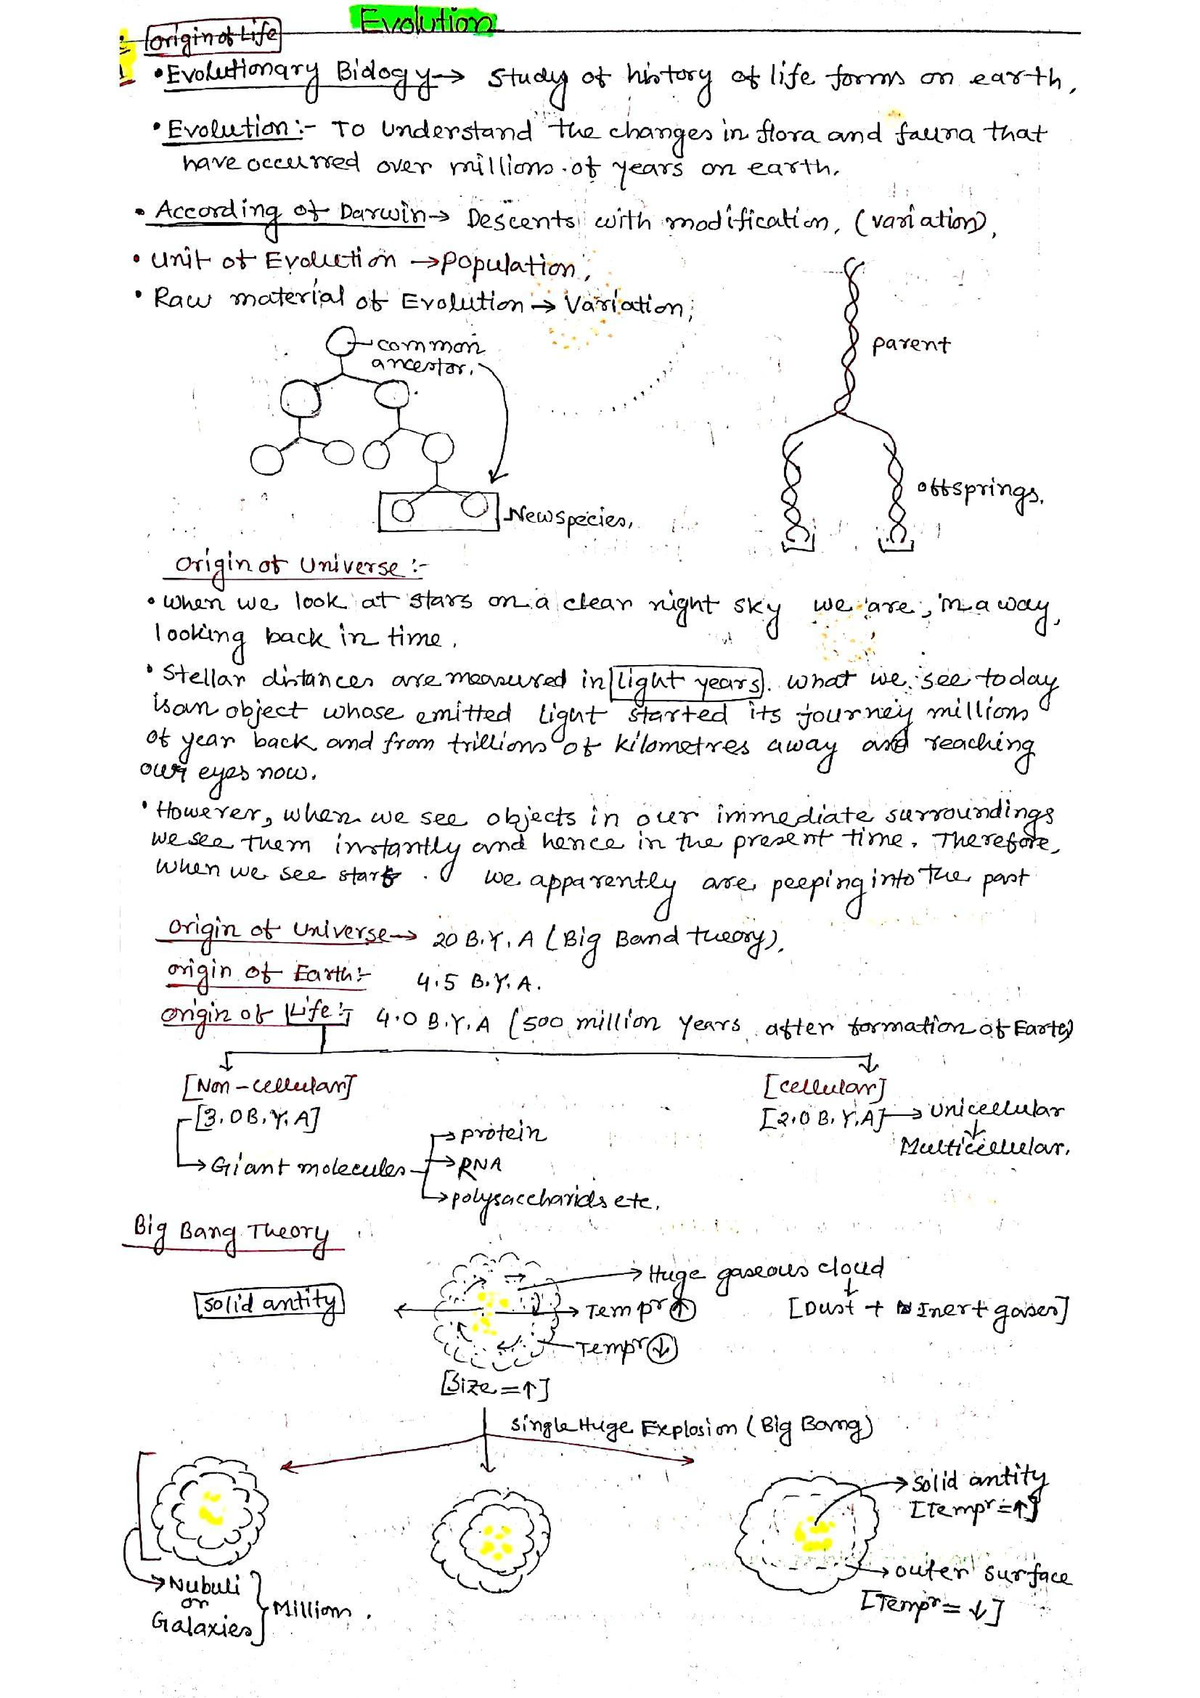 Evolution
Origin of Life
• Evolutionary Biology → Study of history of life forms on earth.
• Evolution :- To understand the changes in flora and fauna that
have occurred over millions of years on earth.
• According of Darwin → Descents with modification, (variation),
• Unit of Evolution → Population;
• Raw material of Evolution → Variation;
common
ancestor.
parent
offsprings.
New species.
Origin of Universe :-
• When we look at stars on a clear night sky we are, in a way,
looking back in time.
• Stellar distances are measured in light years. What we see today
is an object whose emitted light started its journey millions
of year back and from trillions of kilometres away and reaching
our eyes now.
• However, when we see objects in our immediate surroundings
we see them instantly and hence in the present time. Therefore,
when we see stars we apparently are peeping into the past
Origin of Universe → 20 B.Y.A (Big Band theory).
Origin of Earth :- 4.5 B.Y.A.
Origin of Life :- 4.0 B.Y.A (500 million years after formation of Earth)
[Non-cellular] [cellular]
[3.0 B.Y.A] [2.0 B.Y.A] → Unicellular
→ Protein ↓ Multicellular.
→ Giant molecules → RNA
→ polysaccharids etc.
Big Bang Theory
→ Huge gaseous cloud
Solid antity → Tempr ↑ [Dust + Inert gases]
Tempr ↓
[Size = ↑]
Single Huge Explosion (Big Bang)
→ Solid antity
[Tempr = ↑]
→ outer surface
[Tempr = ↓]
→ Nubuli
or } Million.
Galaxies